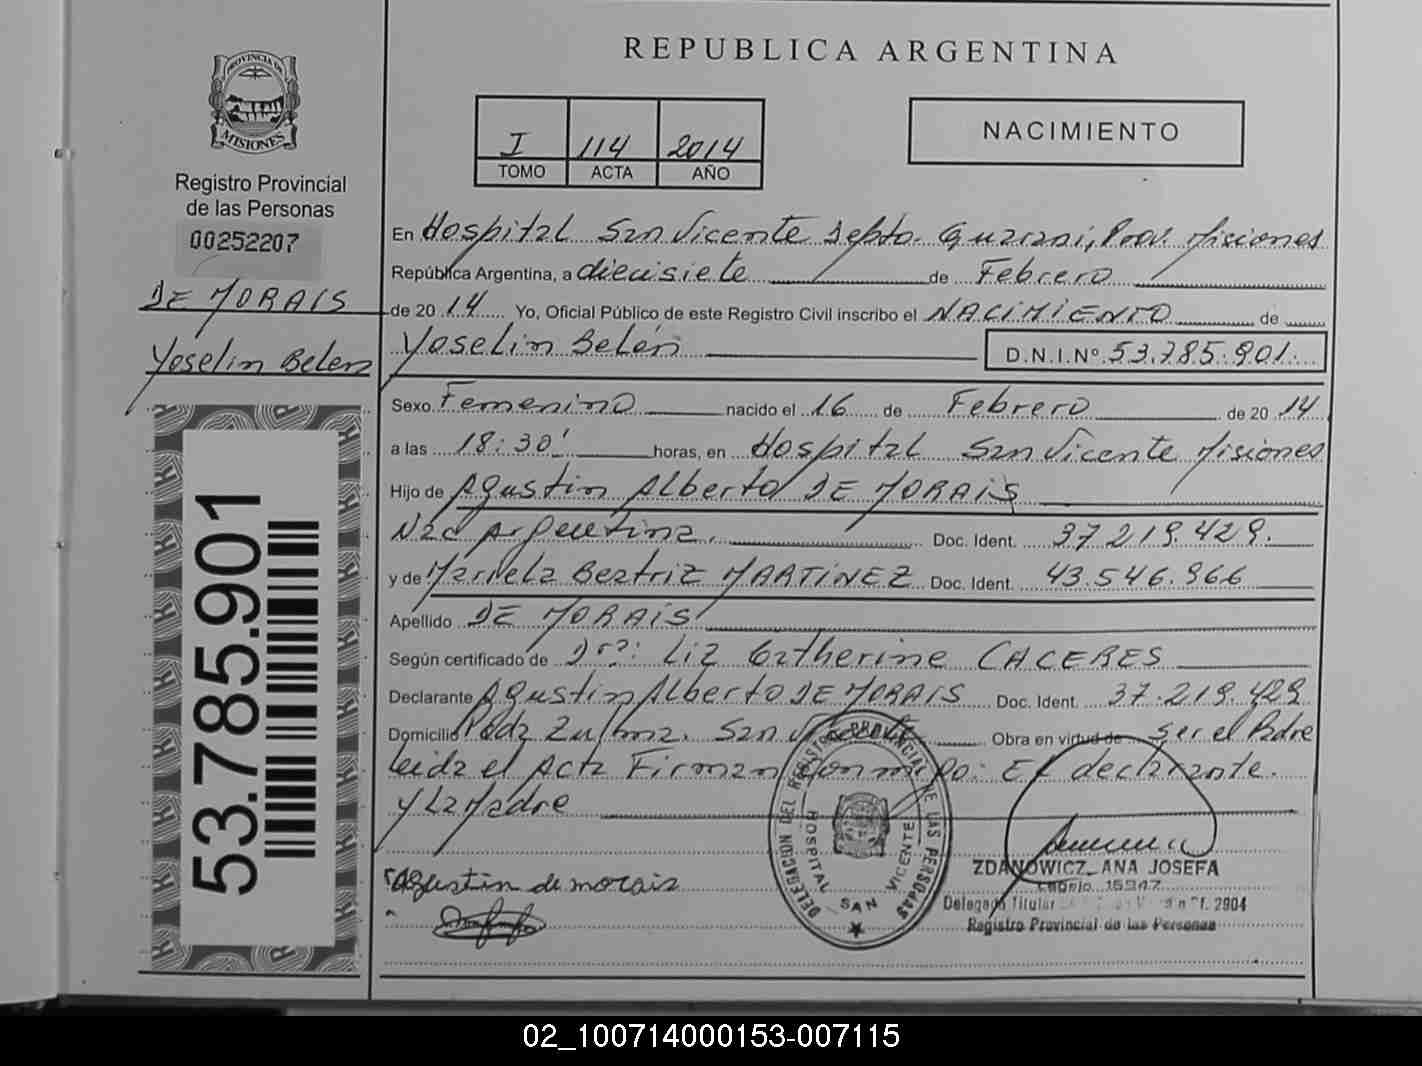 PROVINCIA DE
MISIONES
Registro Provincial
de las Personas
00252207
DE MORAIS
Yoselin Belen
53.785.901
REPUBLICA ARGENTINA
I 114 2014
TOMO ACTA AÑO
NACIMIENTO
En Hospital San Vicente Depto. Guarani, Prov. Misiones
República Argentina, a diecisiete de Febrero
de 2014 Yo, Oficial Público de este Registro Civil inscribo el NACIMIENTO de
Yoselin Belén D.N.I.Nº 53.785.901.
Sexo Femenino nacido el 16 de Febrero de 2014
a las 18:30' horas, en Hospital San Vicente Misiones
Hijo de Agustin Alberto DE MORAIS
Nac Argentina. Doc. Ident. 37.219.429.
y de Marnela Beatriz MARTINEZ Doc. Ident. 43.546.966
Apellido DE MORAIS
Según certificado de Drª: Liz Catherine CACERES
Declarante Agustin Alberto DE MORAIS Doc. Ident. 37.219.429
Domicilio Pdda Zulma. San Vicente Obra en virtud de ser el Padre
Leida el Acta Firman conmigo: El declarante.
y La Madre
Agustin de morais
DELEGACION DEL REGISTRO PROVINCIAL DE LAS PERSONAS
HOSPITAL SAN VICENTE
ZDANOWICZ, ANA JOSEFA
Legajo 15947
Delegado Titular Of. 2904
Registro Provincial de las Personas
02_100714000153-007115